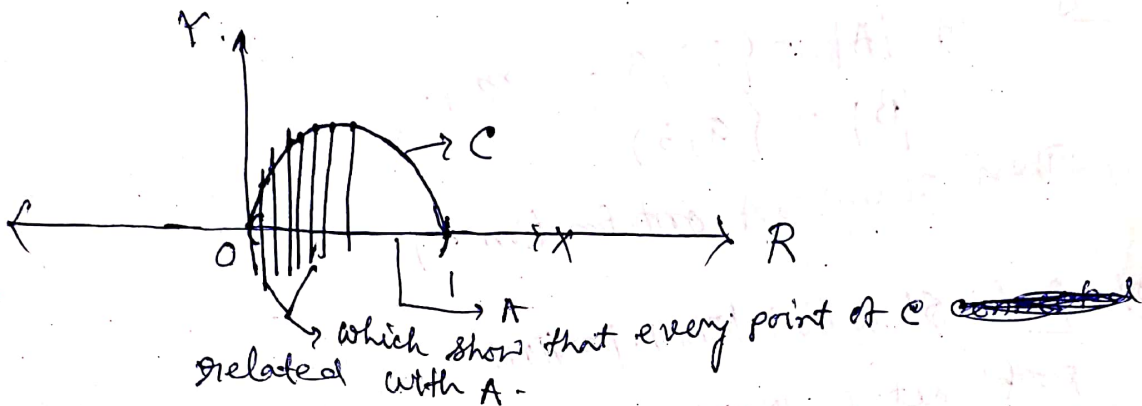 Y
C
O
1
X
R
A
which show that every point of C
related with A.